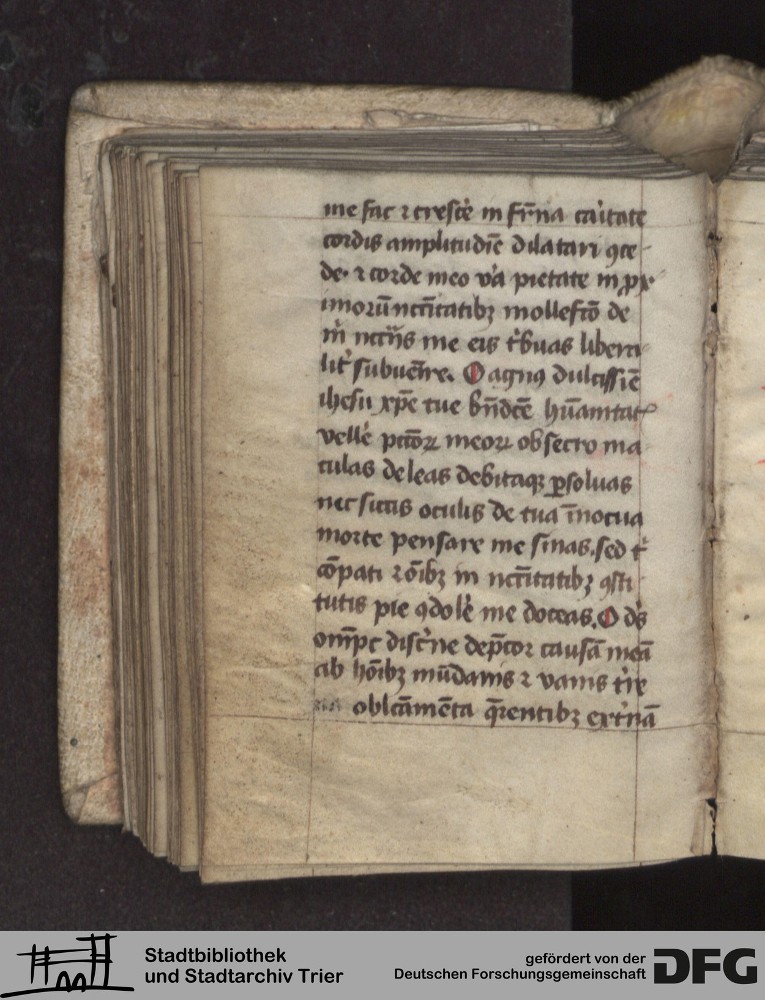 me fac ⁊ cresce᷑ in fr̄na caı᷑tate
cordis amplitudīe dilatari ꝯce-
de· ⁊ corde meo va᷑ pietate in ꝓx-
imorū nccı̄tatibꝫ mollefcō de
in nccı̄is me eis tı᷑buas libera-
lit᷑ subuenı̄re. O agnꝰ dulcissīe
ihesu xp̄e tue bn̄dcē hūanitat
velle᷑ pctōꝝ meoꝝ obsecro ma
culas deleas debitaqꝫ ꝑsoluas
nec siccis oculis de tua īnocua
morte pensare me sinas. sed t᷑
cōpati ⁊ oı̄bꝫ in nccı̄tatibꝫ ꝯsti
tutis pie ꝯdole᷑ me doceas. O ds̄
omı̄pc discı᷑ne dep̄cor causā meā
ab hoı̄bꝫ mūdanis ⁊ vanis t᷑re
oblcāmēta q̄rentibꝫ ext᷑nā
Stadtbibliothek
und Stadtarchiv Trier
gefördert von der
Deutschen Forschungsgemeinschaft
DFG